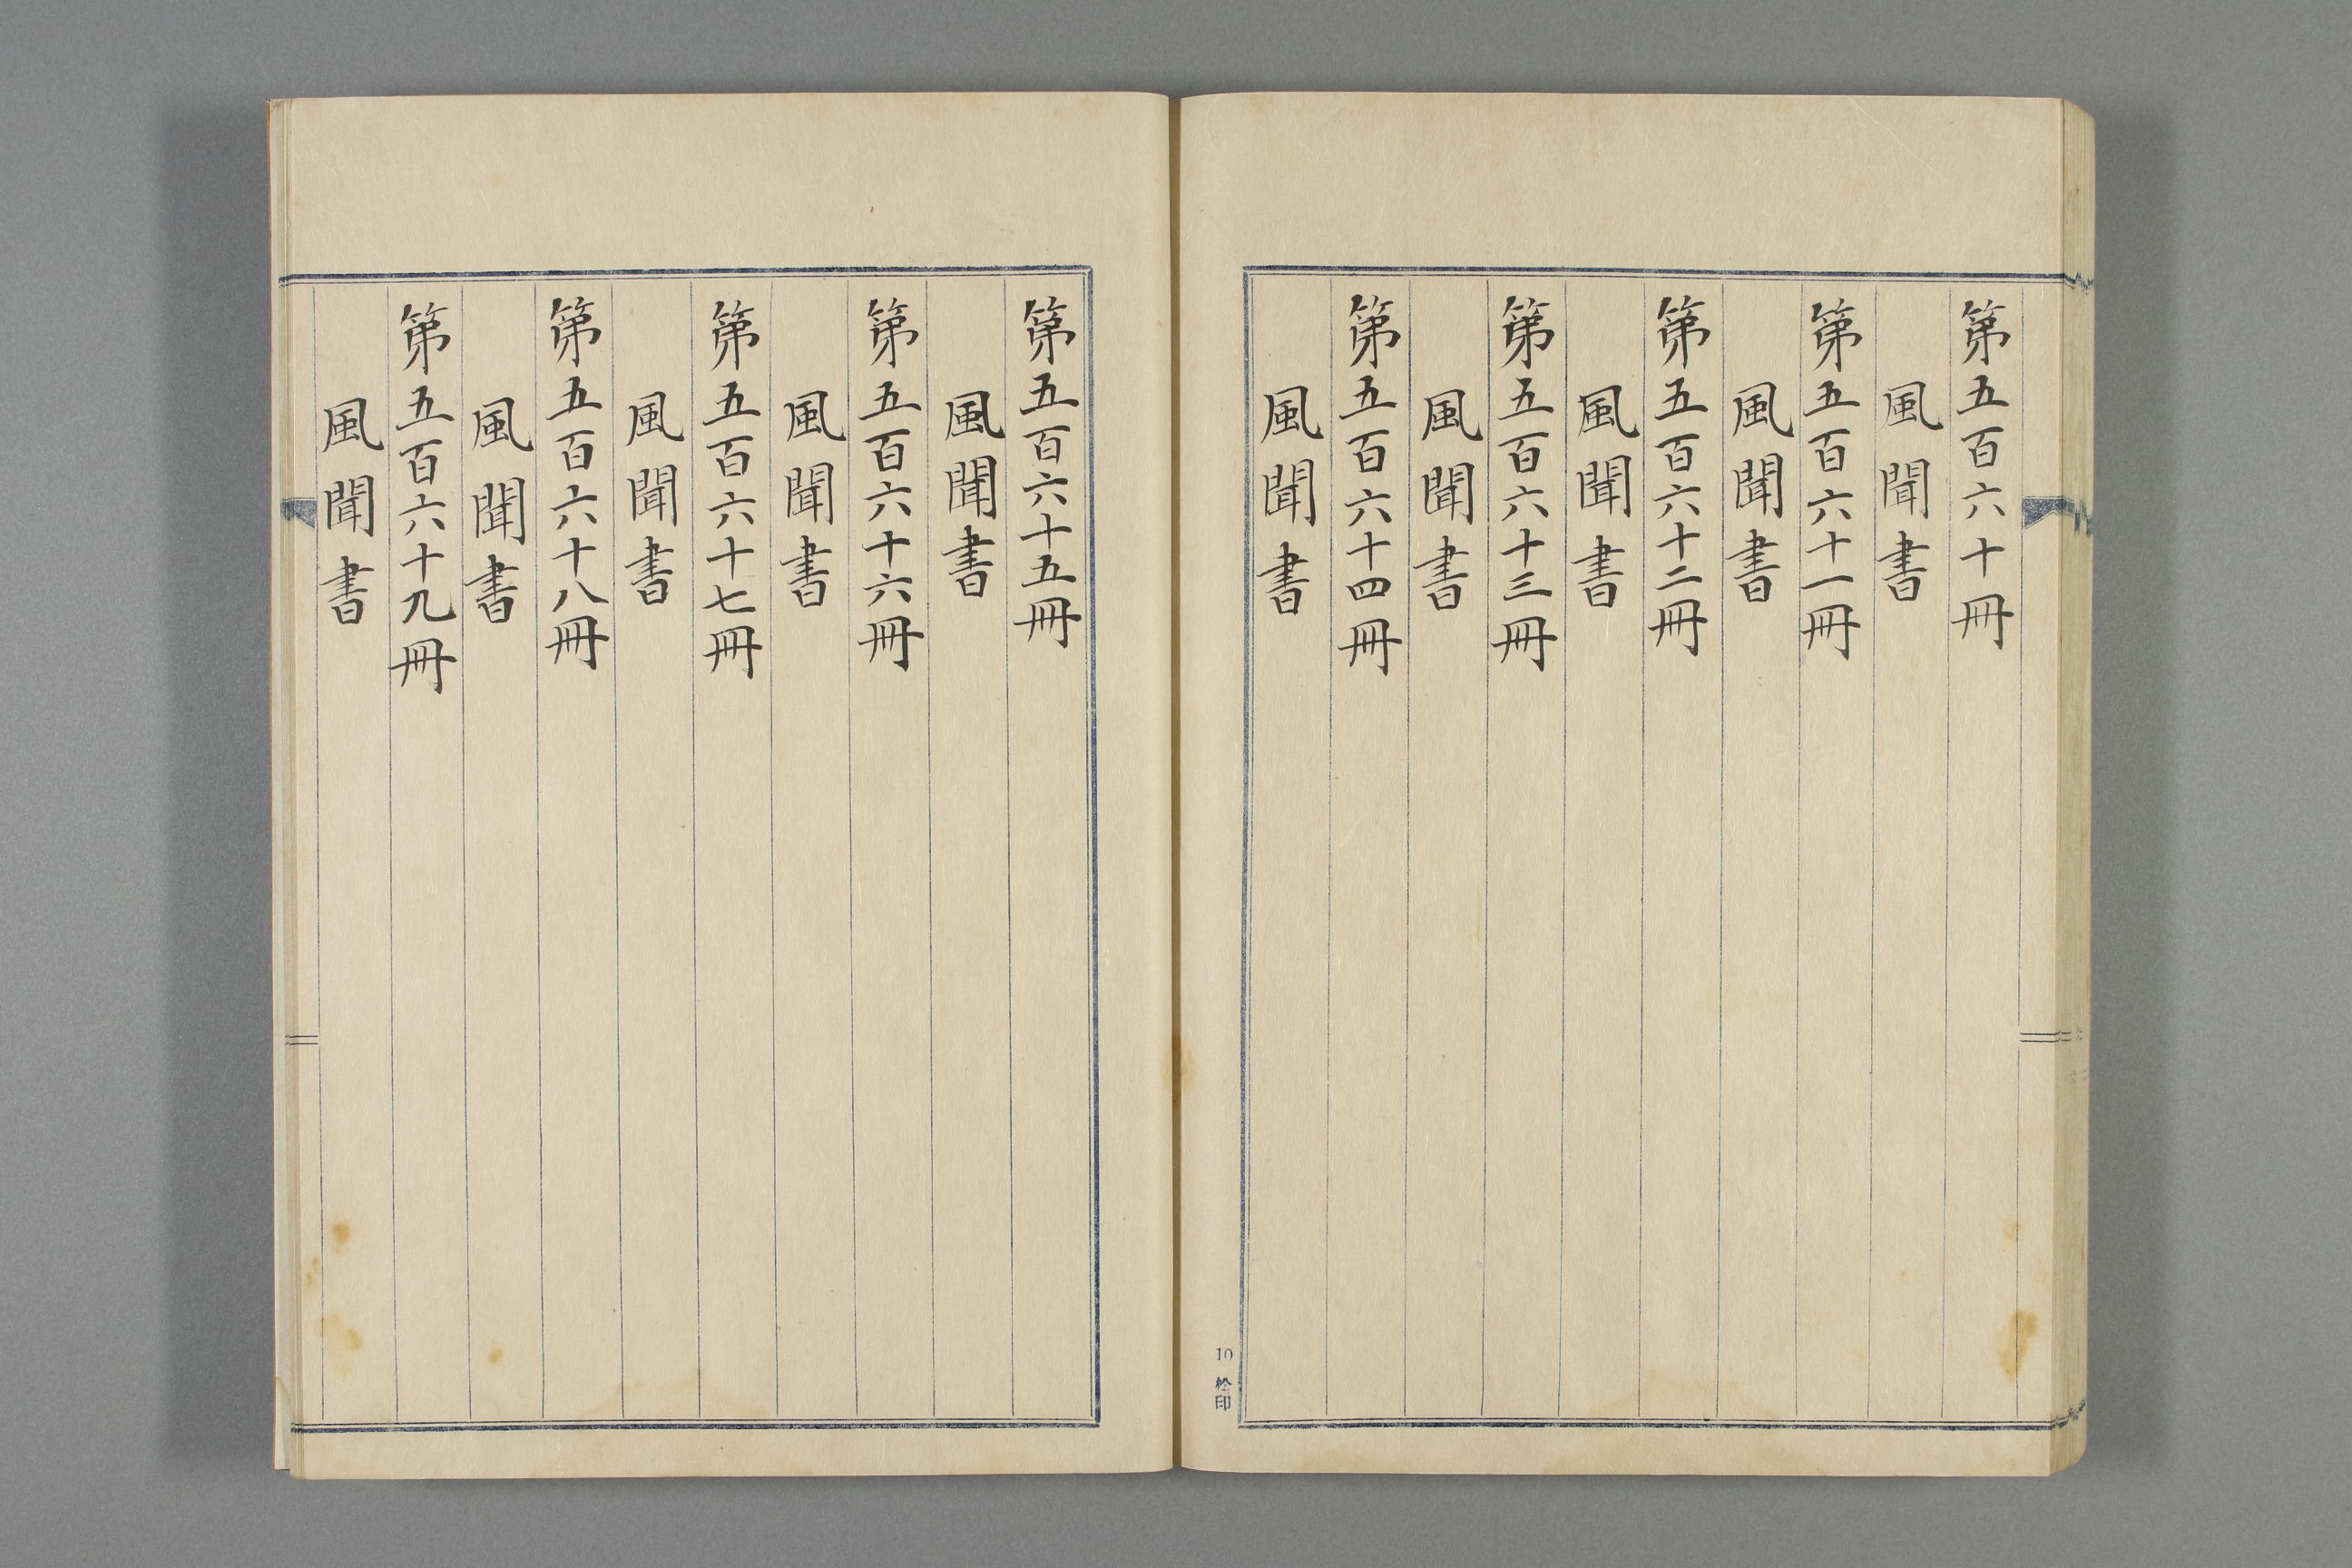 第五百六十冊
風聞書
第五百六十一冊
風聞書
第五百六十二冊
風聞書
第五百六十三冊
風聞書
第五百六十四冊
風聞書
10 松印
第五百六十五冊
風聞書
第五百六十六冊
風聞書
第五百六十七冊
風聞書
第五百六十八冊
風聞書
第五百六十九冊
風聞書